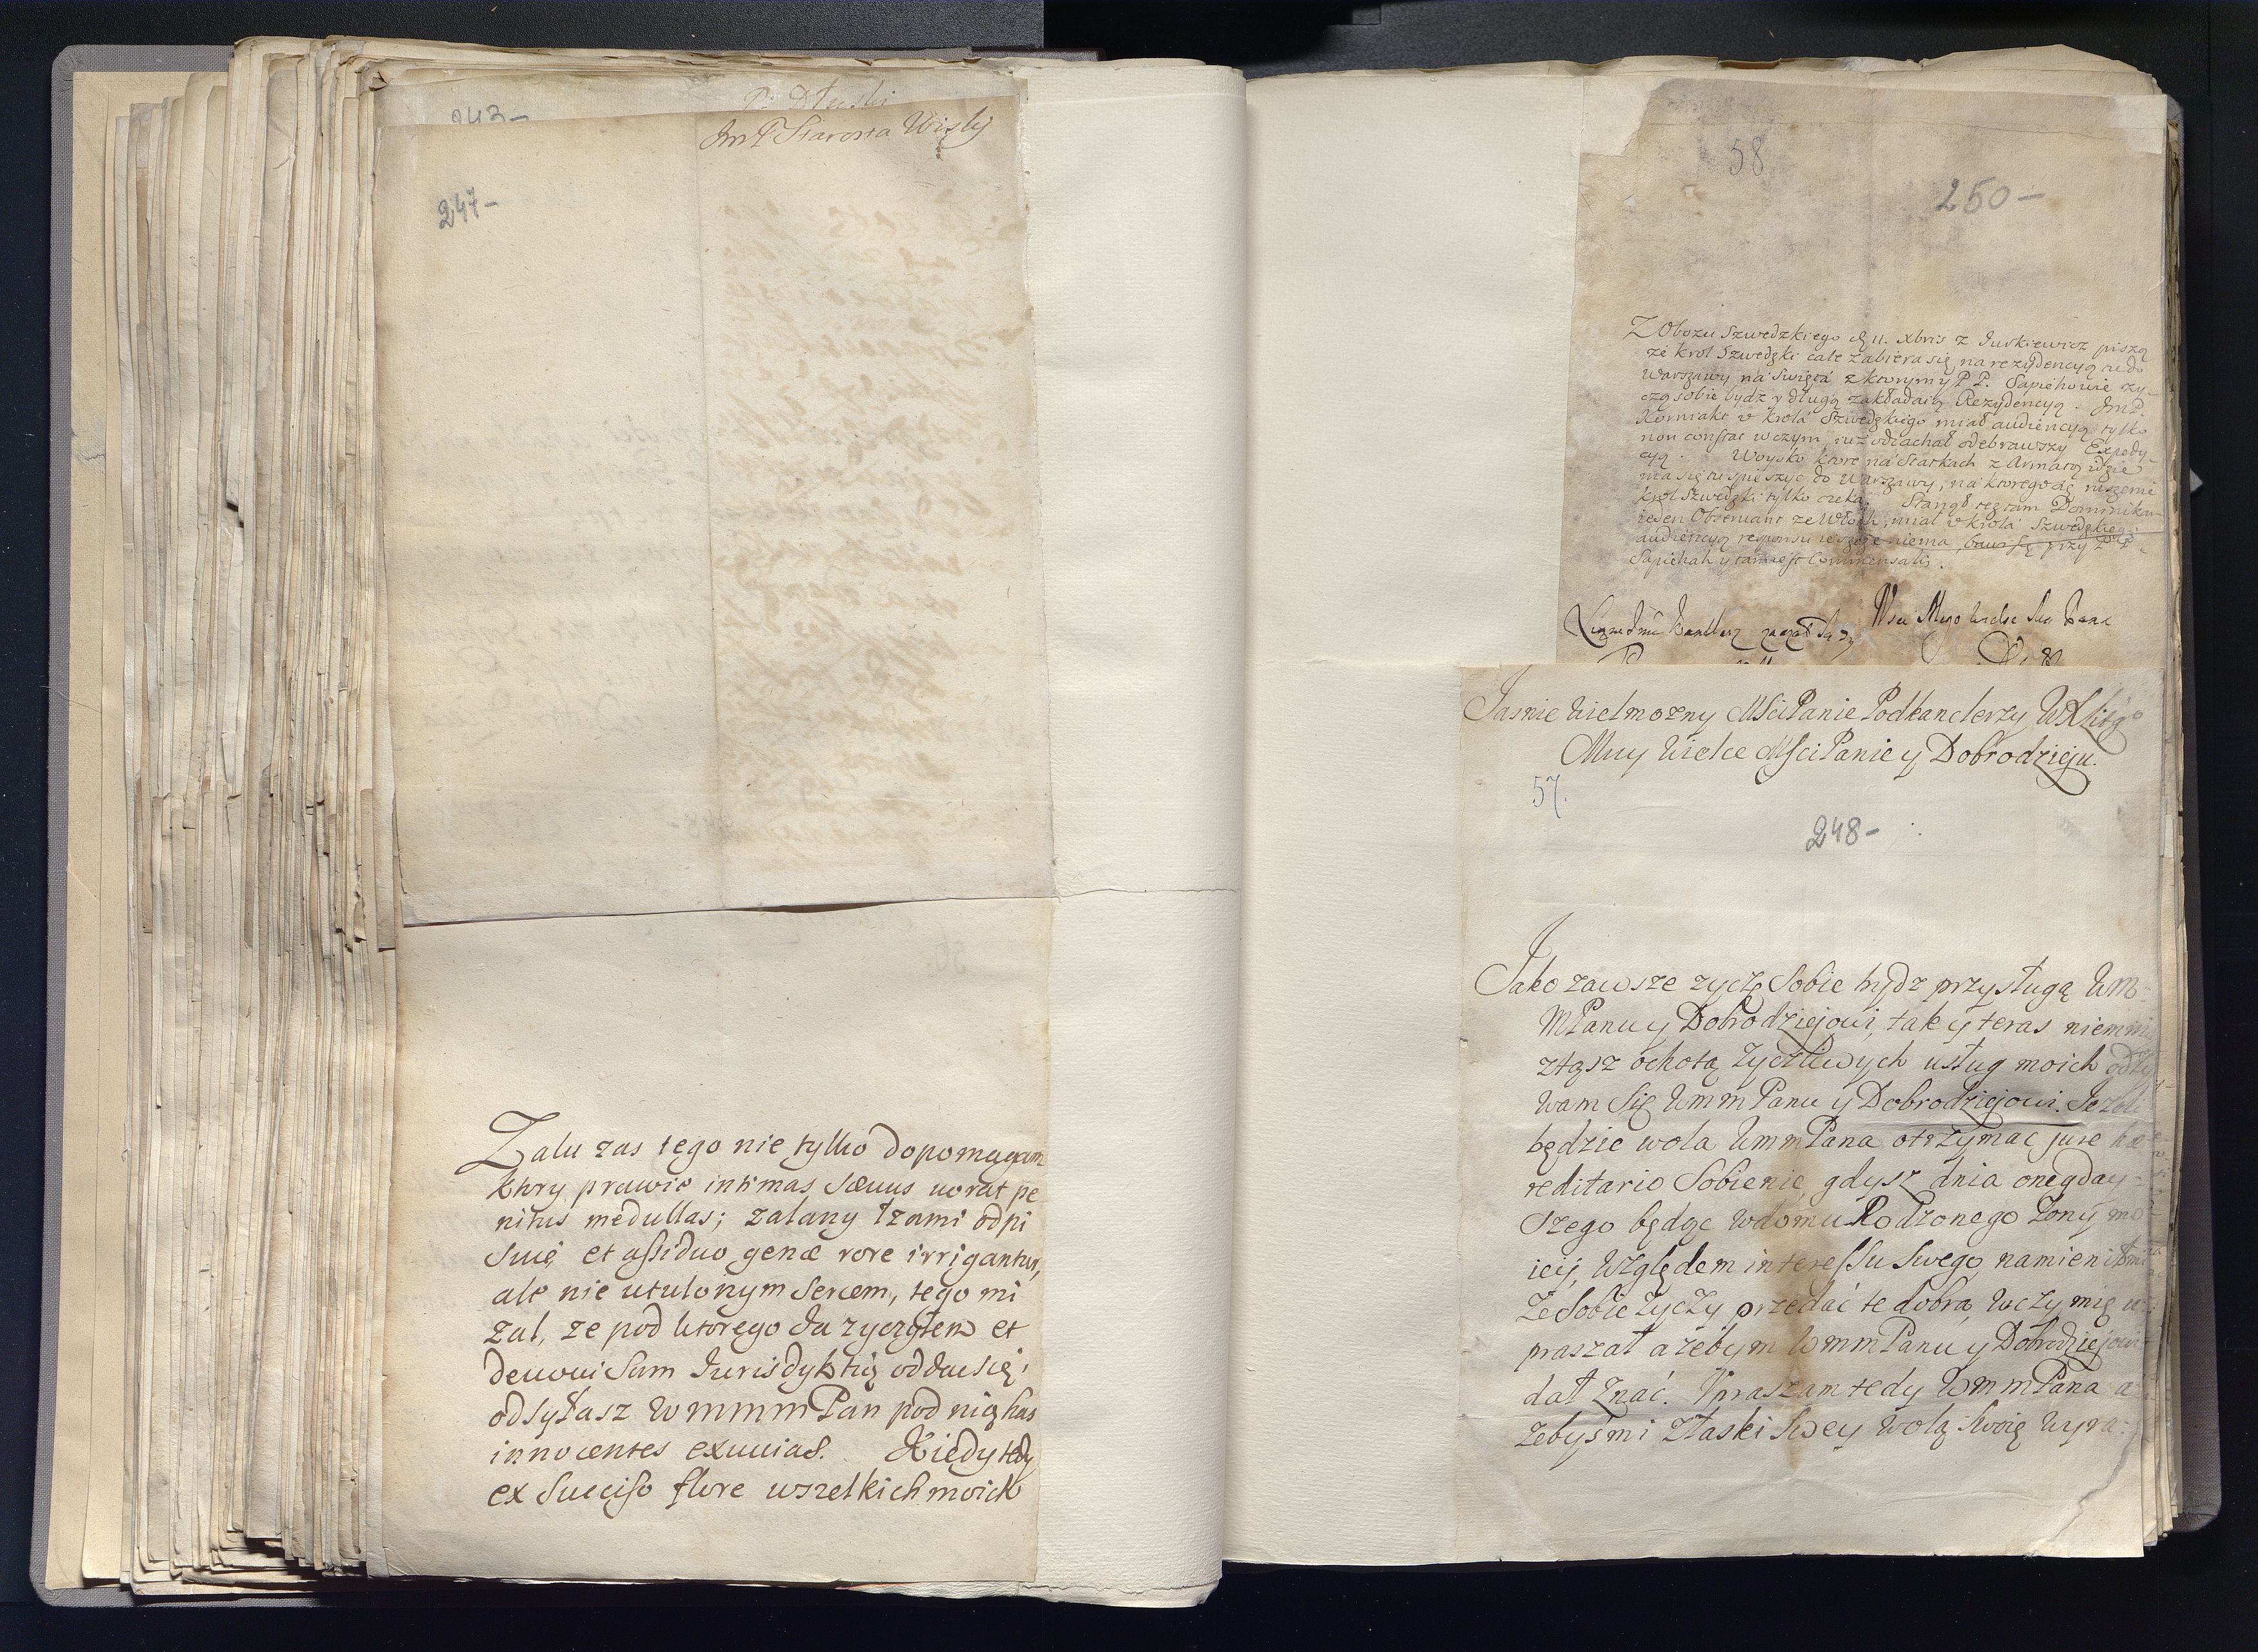 243-
P. Dłuski
Jm P Starosta Wisly
247-
Zalu zas tego nie tylko dopomagam
ktory prawie intimas sævus vorat pe
nitus medullas; zalany łzami odpi
suię et assiduo genæ rore irrigantur,
ale nie utulonym sercem, tego mi
zal, ze pod ktorego Ja zyczyłem et
devovi sam Jurisdyktią oddać się,
odsyłasz WmmmPan pod nię has
innocentes exuvias. Kiedy tedy
ex succiso flore wszelkich moich
58
250-
Z Obozu Szwedzkiego d 11. Xbris z Jurkiewicz piszą
ze krol Szwedzki cale zabiera się na rezydencyą
Warszawy na swięta z ktorymy P P. Sapiehowie zy-
czą sobie bydz y długą zakładaią Rezydencyą. JmP.
Korniakt v krola Szwedzkiego miał audiencyą tylko
non constat w czym, iuz odiachał odebrawszy Expedy-
cyą. Woysko ktore na Statkach z Armatą idzie
ma się tu spieszyc do Warszawy, na ktorego ruszenie
krol Szwedzki tylko czeka. Stanął tez tam Dominikan
ieden Obserwant ze Włoch, miał v krola Szwedzkiego
audiencyą responsu ieszcze niema, bawi się przy P P.
Sapiehach y tam iest Commensalis.
Wm Mego wielce Mci Pana
Jasnie Wielmozny MsciPanie Podkanclerzy WXLitgo
Muy Wielce MsciPanie y Dobrodzieju.
57.
248-
Jako zawsze zyczę Sobie bydz przysługą Wm-
MPanu y Dobrodziejowi, tak y teras niemni
ztąsz ochotą zyczliwych usług moich odzy
wam się WmmPanu y Dobrodziejowi. Jezeli
będzie wola WmmPana otrzymac jure hæ
reditario Sobienie, gdysz dnia onegday-
szego będąc w domu Rodzonego Zony mo
iey, Względem interessu swego namienił mi
ze sobie zyczy przedać te dobra, w czym mię u
praszał azebym WmmPanu y Dobrodziejowi
dał znać. Upraszam tedy WmmPana a
zebys mi z łaski swey wolą swoię wyra-